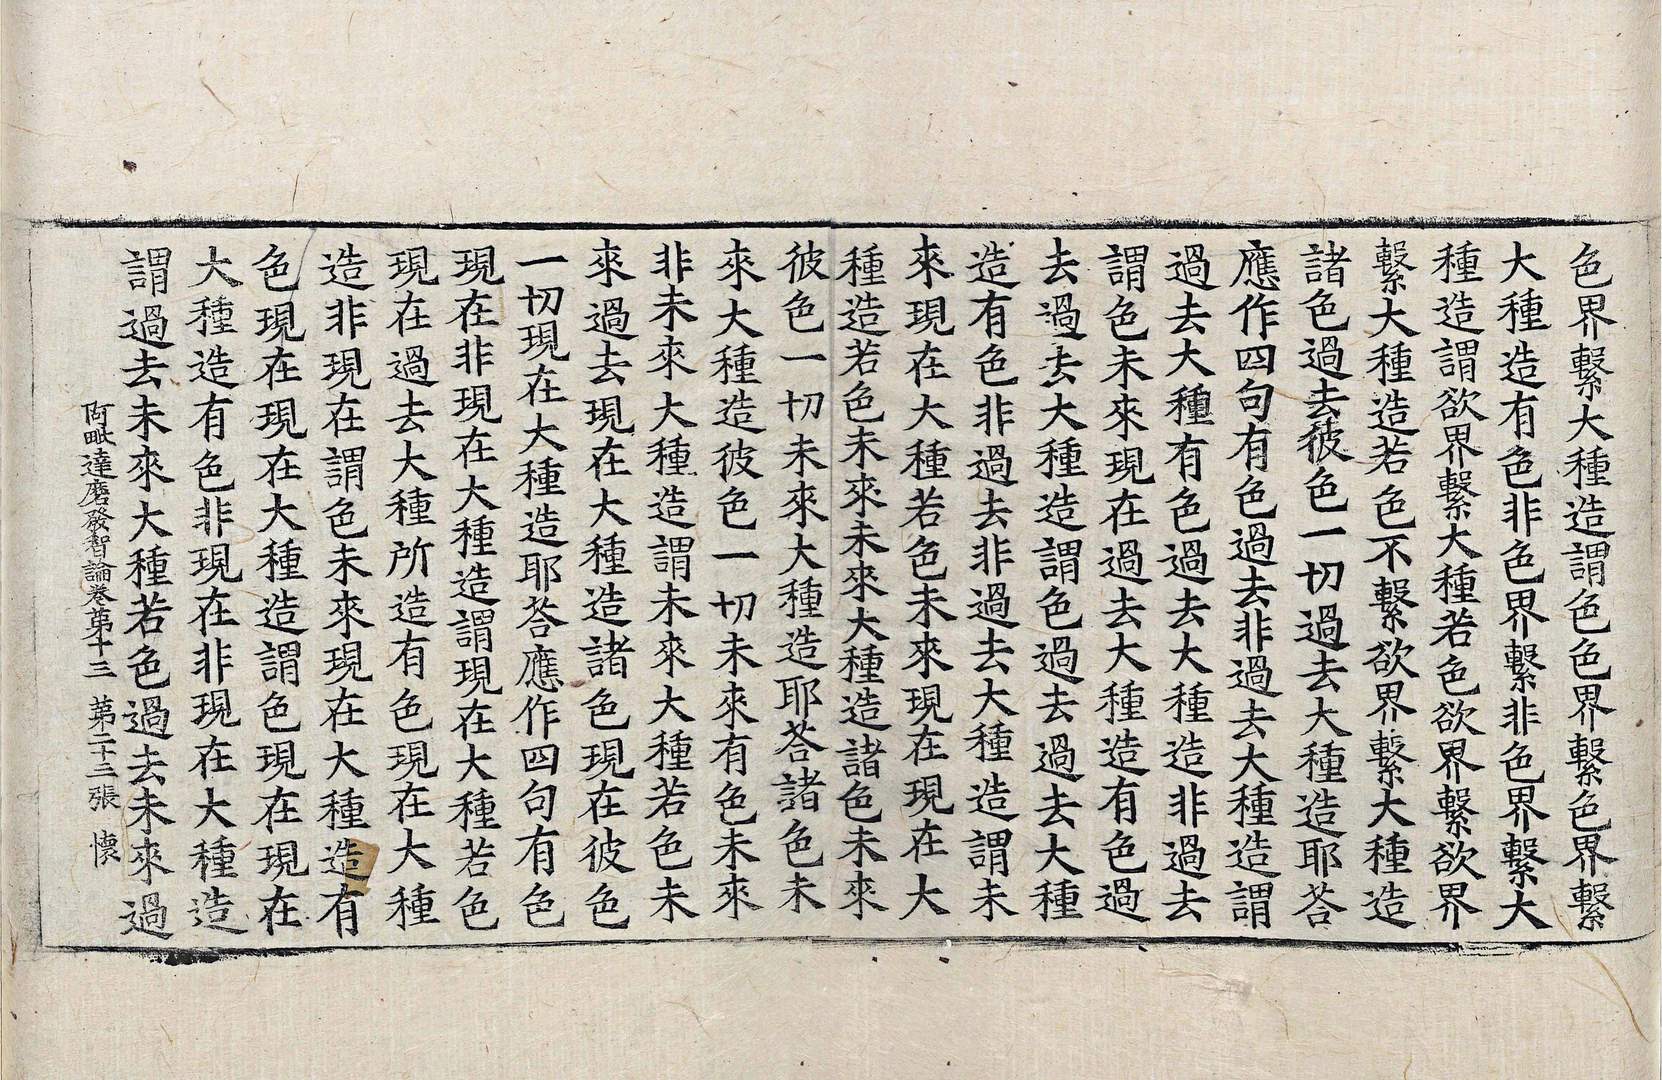 色界繫大種造謂色色界繫色界繫
大種造有色非色界繫非色界繫大
種造謂欲界繫大種若色欲界繫欲界
繫大種造若色不繫欲界繫大種造
諸色過去彼色一切過去大種造耶荅
應作四句有色過去非過去大種造謂
過去大種有色過去大種造非過去
謂色未來現在過去大種造有色過
去過去大種造謂色過去過去大種
造有色非過去非過去大種造謂未
來現在大種若色未來現在現在大
種造若色未來未來大種造諸色未來
彼色一切未來大種造耶荅諸色未
來大種造彼色一切未來有色未來
非未來大種造謂未來大種若色未
來過去現在大種造諸色現在彼色
一切現在大種造耶荅應作四句有色
現在非現在大種造謂現在大種若色
現在過去大種所造有色現在大種
造非現在謂色未來現在大種造有
色現在現在大種造謂色現在現在
大種造有色非現在非現在大種造
謂過去未來大種若色過去未來過
阿毗達磨發智論卷第十三 第二十三張 懷